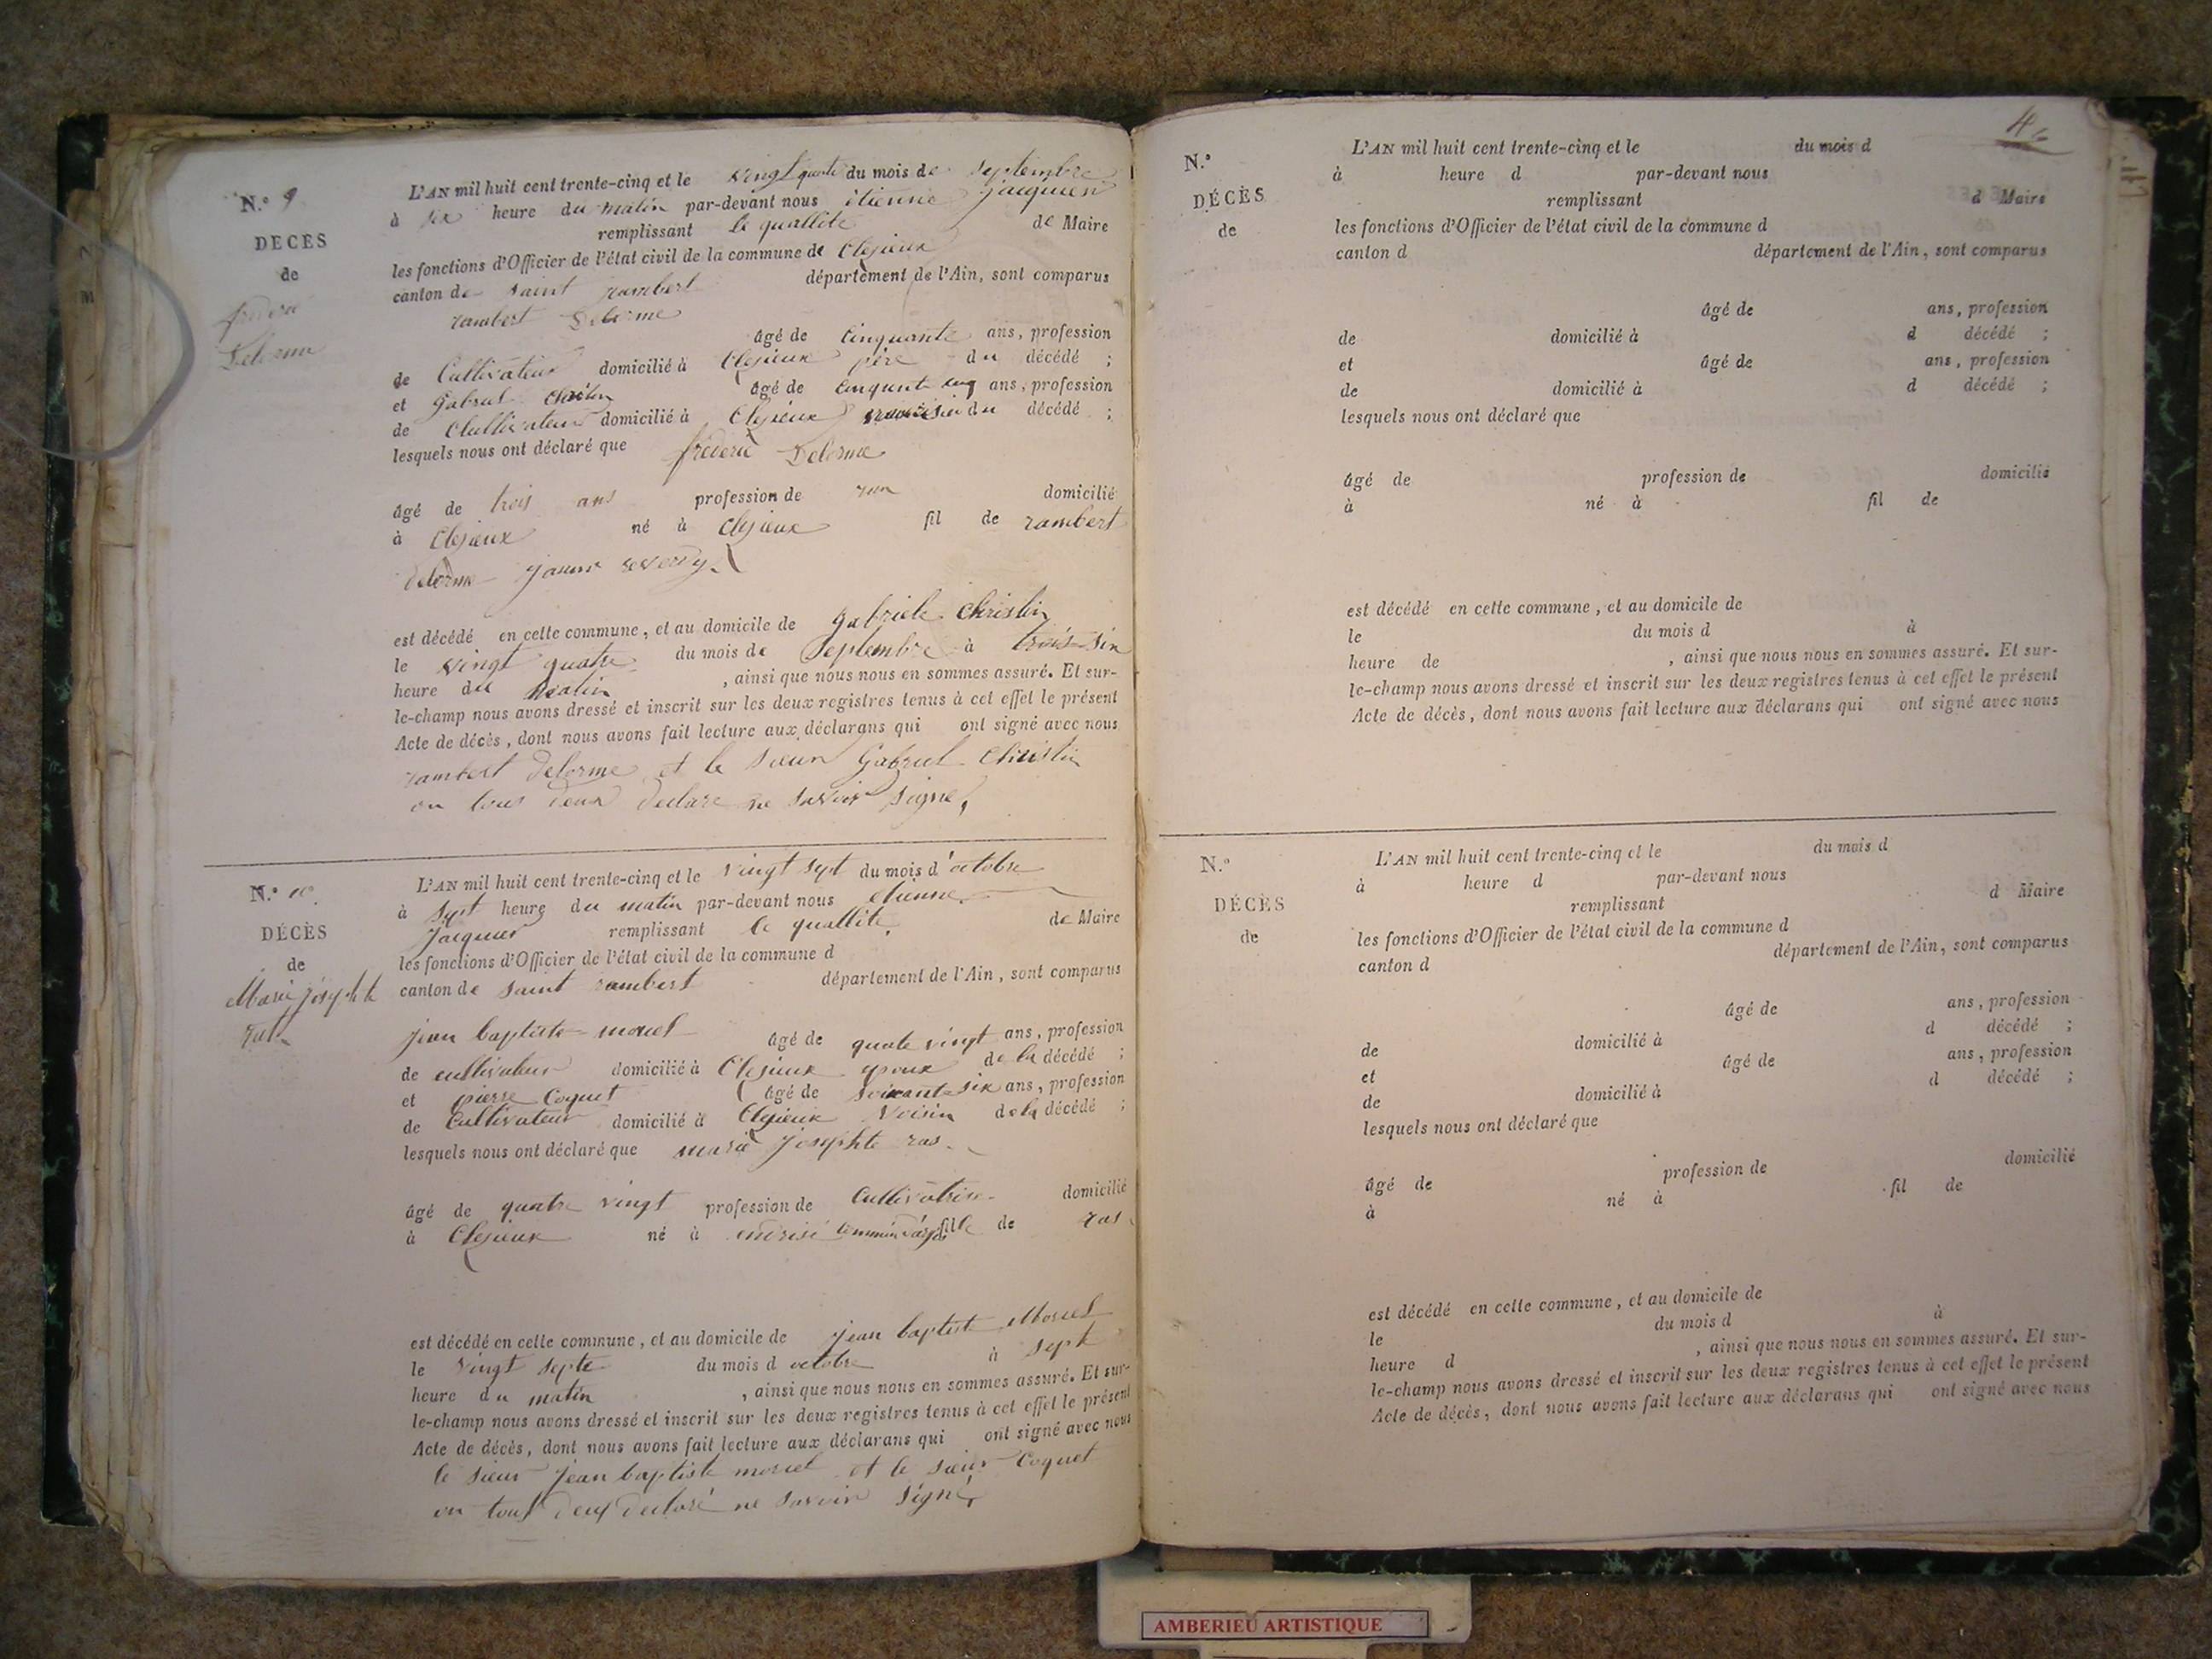 N.° 9
DÉCÈS
de
frédéric
Delorme
L'AN mil huit cent trente-cinq et le vingt quatre du mois de septembre
à six heure du matin par-devant nous étienne jacquier
remplissant le quallité de Maire
les fonctions d'Officier de l'état civil de la commune de Clesieux
canton de saint rambert département de l'Ain, sont comparus
rambert Delorme
âgé de cinquante ans, profession
de Cultivateur domicilié à Clesieux père du décédé ;
et gabriel christin âgé de cinquante cinq ans, profession
de Cultivateur domicilié à Clesieux voisin du décédé ;
lesquels nous ont déclaré que frédéric Delorme
âgé de trois ans profession de domicilié
à Clesieux né à Clesieux fil de rambert
delorme
est décédé en cette commune, et au domicile de gabriele christin
le vingt quatre du mois de septembre à trois
heure du matin , ainsi que nous nous en sommes assuré. Et sur-
le-champ nous avons dressé et inscrit sur les deux registres tenus à cet effet le présent
Acte de décès, dont nous avons fait lecture aux déclarans qui ont signé avec nous
rambert delorme et le sieur gabriel christin
on tous deux declare ne savoir signe,
N.° 10.
DÉCÈS
de
Marie josephte
ras
L'AN mil huit cent trente-cinq et le vingt sept du mois d'octobre
à sept heure du matin par-devant nous etienne
jacquier remplissant le quallité de Maire
les fonctions d'Officier de l'état civil de la commune d
canton de saint rambert département de l'Ain, sont comparus
jean baptiste morel âgé de quate vingt ans, profession
de cultivateur domicilié à Clesieux epoux de la décédé ;
et pierre Coquet âgé de soixante six ans, profession
de Cultivateur domicilié à Clesieux voisin de la décédé ;
lesquels nous ont déclaré que marie josephte ras
âgé de quatre vingt profession de Cultivatrise domicilié
à Clesieux né à fille de ras
est décédé en cette commune, et au domicile de jean baptiste Morel
le vingt septe du mois d octobre à sept
heure du matin , ainsi que nous nous en sommes assuré. Et sur-
le-champ nous avons dressé et inscrit sur les deux registres tenus à cet effet le présent
Acte de décès, dont nous avons fait lecture aux déclarans qui ont signé avec nous
le sieur jean baptiste morel et le sieur Coquet
on tous deux declaré ne savoir signé,
4
N.°
DÉCÈS
de
L'AN mil huit cent trente-cinq et le du mois d
à heure d par-devant nous
remplissant d Maire
les fonctions d'Officier de l'état civil de la commune d
canton d département de l'Ain, sont comparus
âgé de ans, profession
de domicilié à d décédé ;
et âgé de ans, profession
de domicilié à d décédé ;
lesquels nous ont déclaré que
âgé de profession de domicilié
à né à fil de
est décédé en cette commune, et au domicile de
le du mois d à
heure de , ainsi que nous nous en sommes assuré. Et sur-
le-champ nous avons dressé et inscrit sur les deux registres tenus à cet effet le présent
Acte de décès, dont nous avons fait lecture aux déclarans qui ont signé avec nous
N.°
DÉCÈS
de
L'AN mil huit cent trente-cinq et le du mois d
à heure d par-devant nous
remplissant d Maire
les fonctions d'Officier de l'état civil de la commune d
canton d département de l'Ain, sont comparus
âgé de ans, profession
de domicilié à d décédé ;
et âgé de ans, profession
de domicilié à d décédé ;
lesquels nous ont déclaré que
âgé de profession de domicilié
à né à fil de
est décédé en cette commune, et au domicile de
le du mois d à
heure d , ainsi que nous nous en sommes assuré. Et sur-
le-champ nous avons dressé et inscrit sur les deux registres tenus à cet effet le présent
Acte de décès, dont nous avons fait lecture aux déclarans qui ont signé avec nous
AMBERIEU ARTISTIQUE